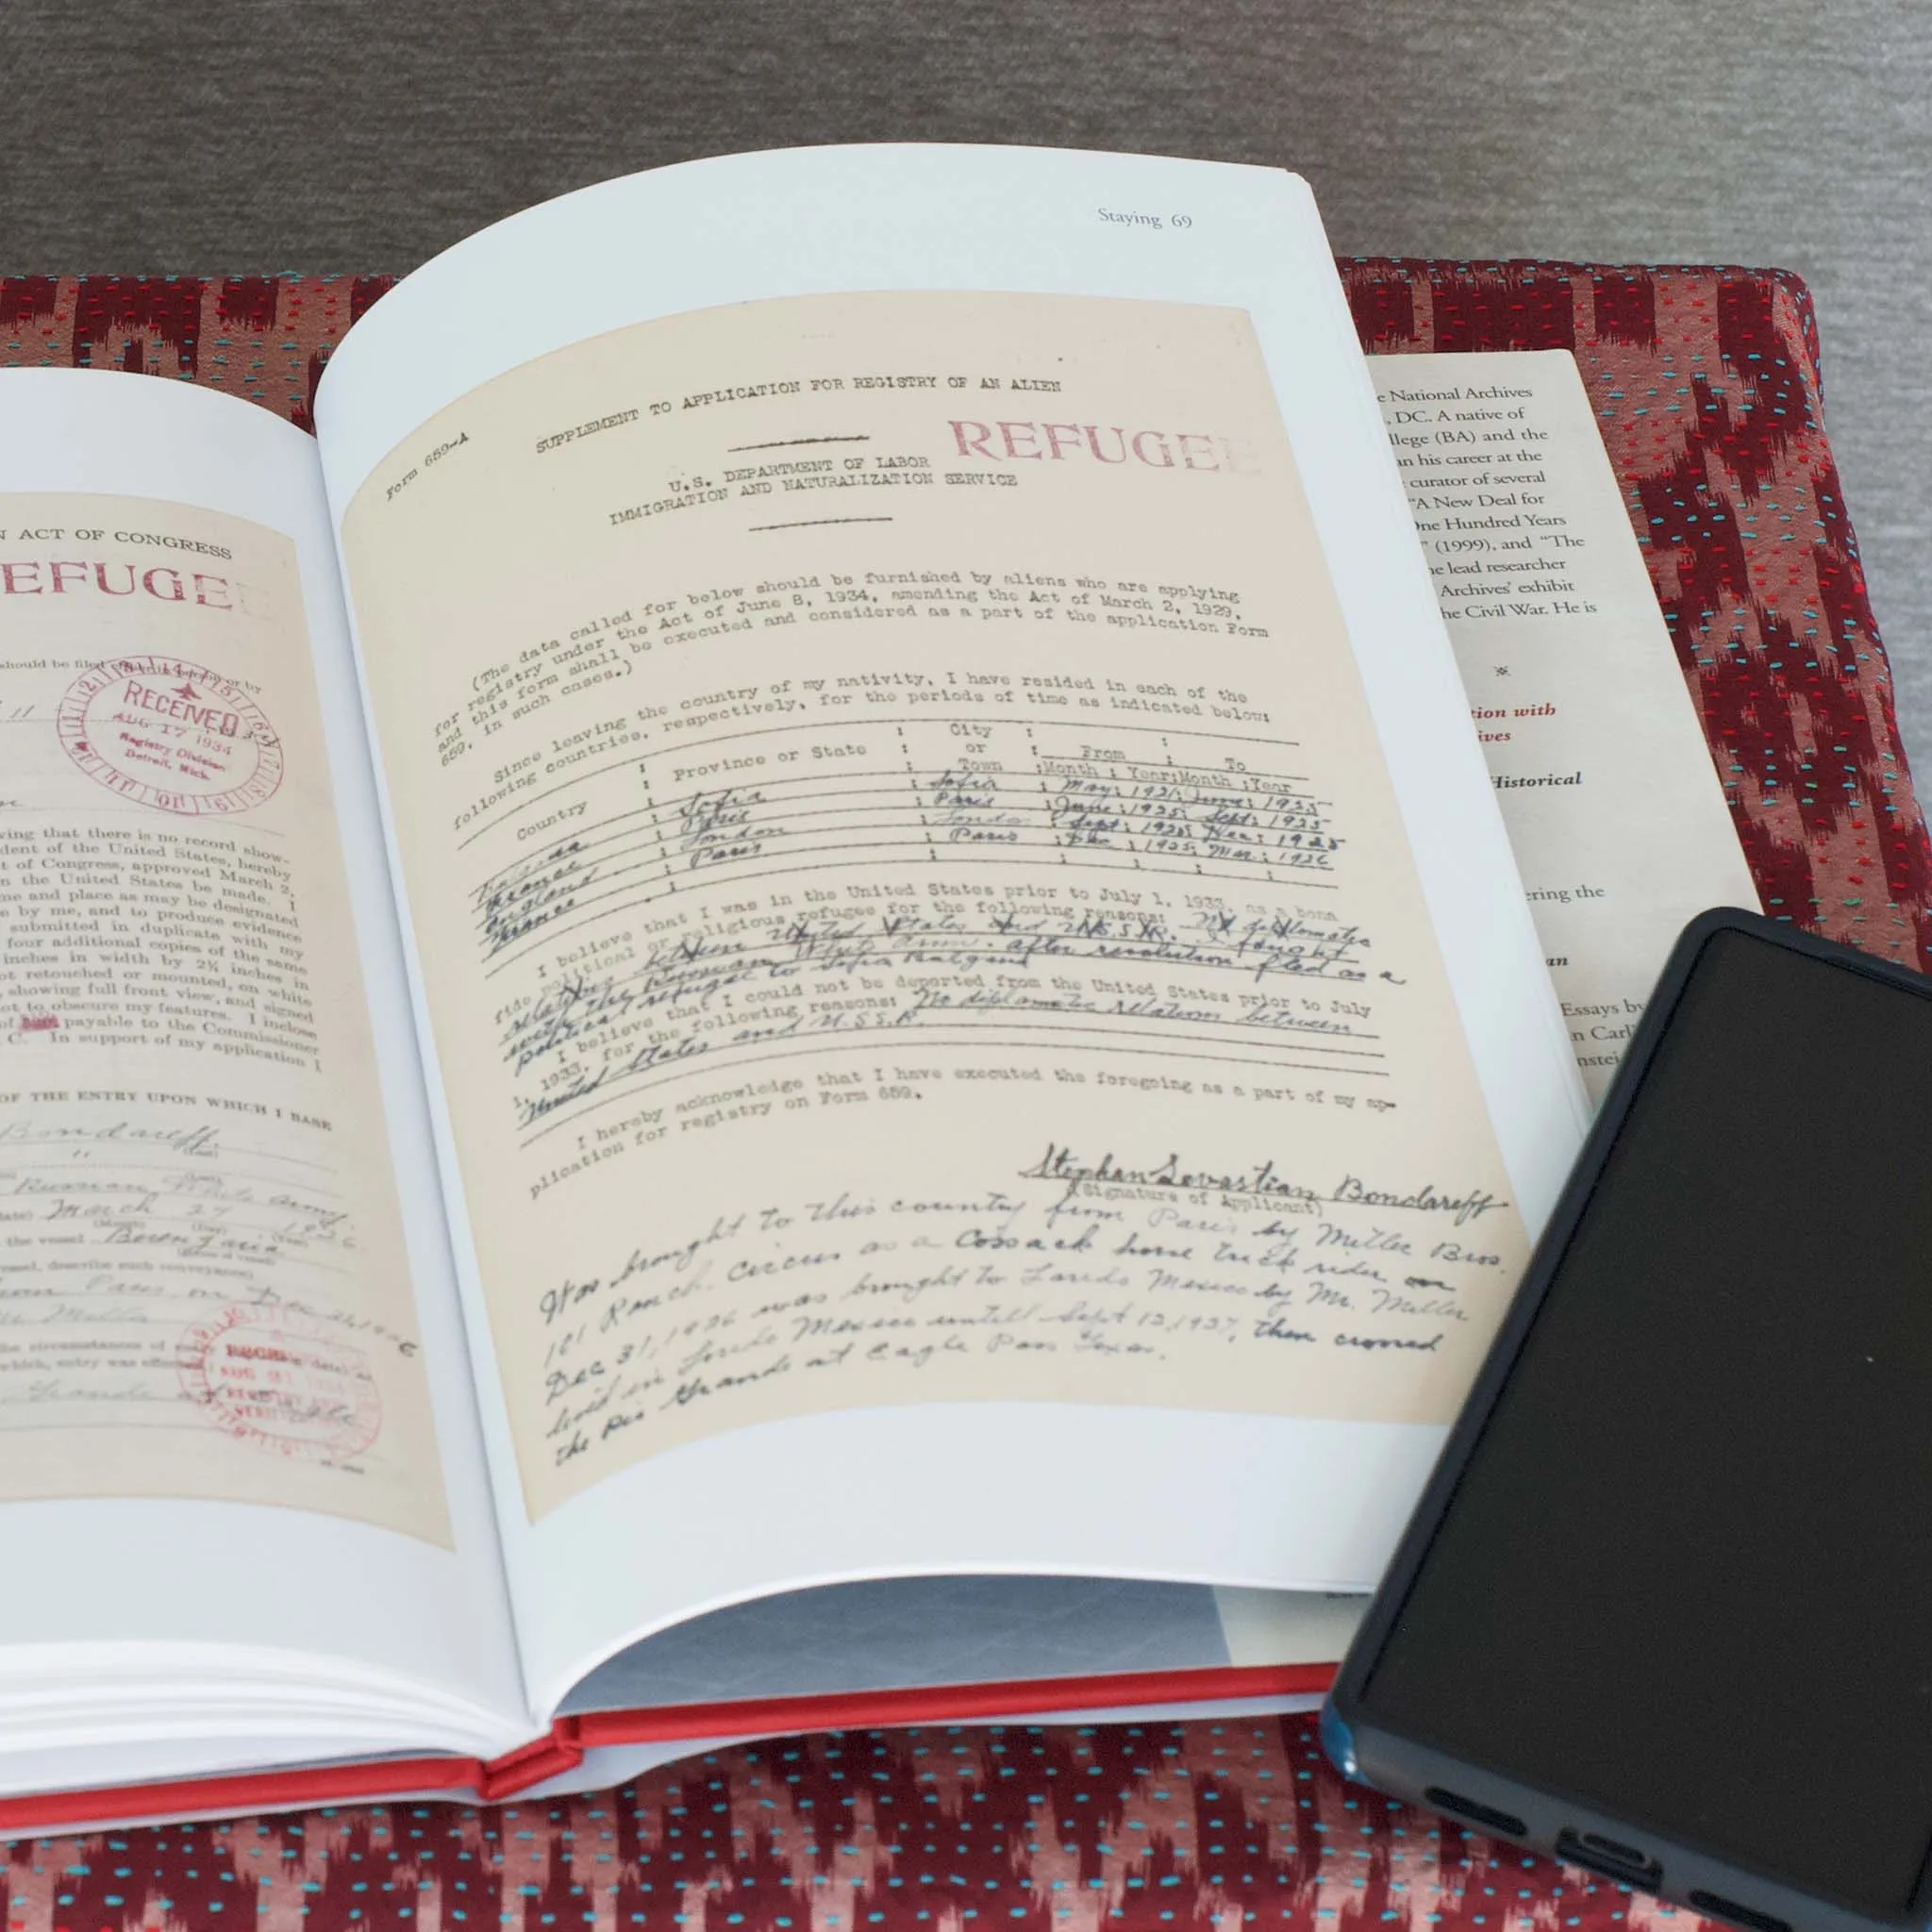 ACT OF CONGRESS
REFUGE
should be filed
RECEIVED
AUG 17 1934
Registry Division
Detroit, Mich.
ving that there is no record show-
dent of the United States, hereby
t of Congress, approved March 2,
n the United States be made. I
me and place as may be designated
e by me, and to produce evidence
submitted in duplicate with my
four additional copies of the same
inches in width by 2½ inches in
ot retouched or mounted, on white
showing full front view, and signed
ot to obscure my features. I inclose
of payable to the Commissioner
C. In support of my application I
OF THE ENTRY UPON WHICH I BASE
Bondareff
Russian White Army
March 27
the vessel Berengaria
vessel, describe such conveyance)
Miller
the circumstances of
which, entry was
Grande
Staying 69
Form 659-A
SUPPLEMENT TO APPLICATION FOR REGISTRY OF AN ALIEN
REFUGEE
U.S. DEPARTMENT OF LABOR
IMMIGRATION AND NATURALIZATION SERVICE
(The data called for below should be furnished by aliens who are applying
for registry under the Act of June 8, 1934, amending the Act of March 2, 1929,
and this form shall be executed and considered as a part of the application Form
659, in such cases.)
Since leaving the country of my nativity, I have resided in each of the
following countries, respectively, for the periods of time as indicated below:
Country : Province or State : City or Town : From : To
Month : Year : Month : Year
Sofia : Sofia : May : 1921 : June : 1925
France : Paris : Paris : June : 1925 : Sept : 1925
England : London : London : Sept : 1925 : : 1925
France : Paris : Paris : Dec : 1925 : Mar : 1926
I believe that I was in the United States prior to July 1, 1933, as a bona
fide political or religious refugee for the following reasons: No diplomatic
relations between United States and U.S.S.R. I fought
with the Russian White Army. After revolution fled as a
political refugee to Sofia Bulgaria
I believe that I could not be deported from the United States prior to July
1, 1933, for the following reasons: No diplomatic relations between
United States and U.S.S.R.
I hereby acknowledge that I have executed the foregoing as a part of my ap-
plication for registry on Form 659.
Stephan Sevastian Bondareff
(Signature of Applicant)
Was brought to this country from Paris by Miller Bros.
101 Ranch Circus as a Cossack horse trick rider on
Dec 31, 1926 was brought to Laredo Mexico by Mr. Miller
lived in Laredo Mexico untill Sept 12, 1927, then crossed
the Rio Grande at Eagle Pass Texas.
e National Archives
, DC. A native of
llege (BA) and the
an his career at the
curator of several
"A New Deal for
One Hundred Years
" (1999), and "The
he lead researcher
Archives' exhibit
he Civil War. He is
tion with
ives
Historical
ering the
an
Essays by
n Carl
nstei